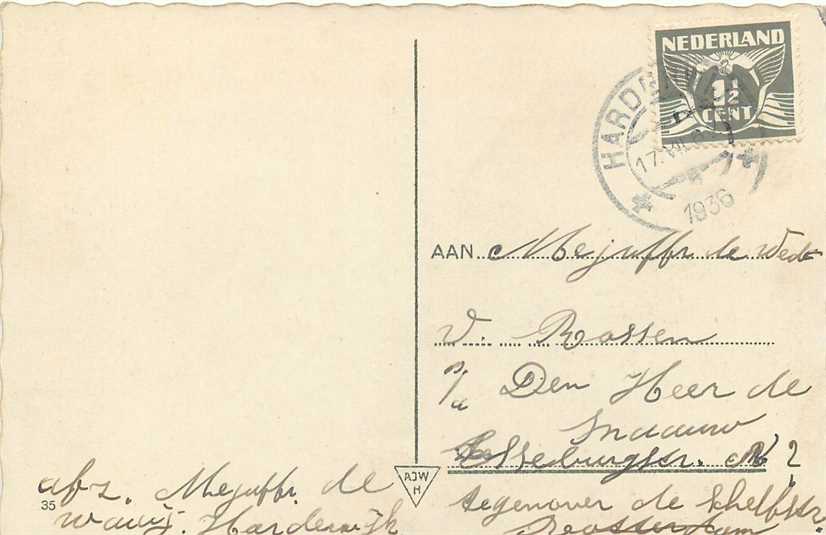 NEDERLAND
1½
CENT
HARD
17.VII
1936
AAN Mejuffr. de Wed
v. Rossen
p/a Den Heer de
Snaauw
N 2
tegenover de Schelfstr.
afz. Mejuffr. de
Harderwijk
AJW
H
35